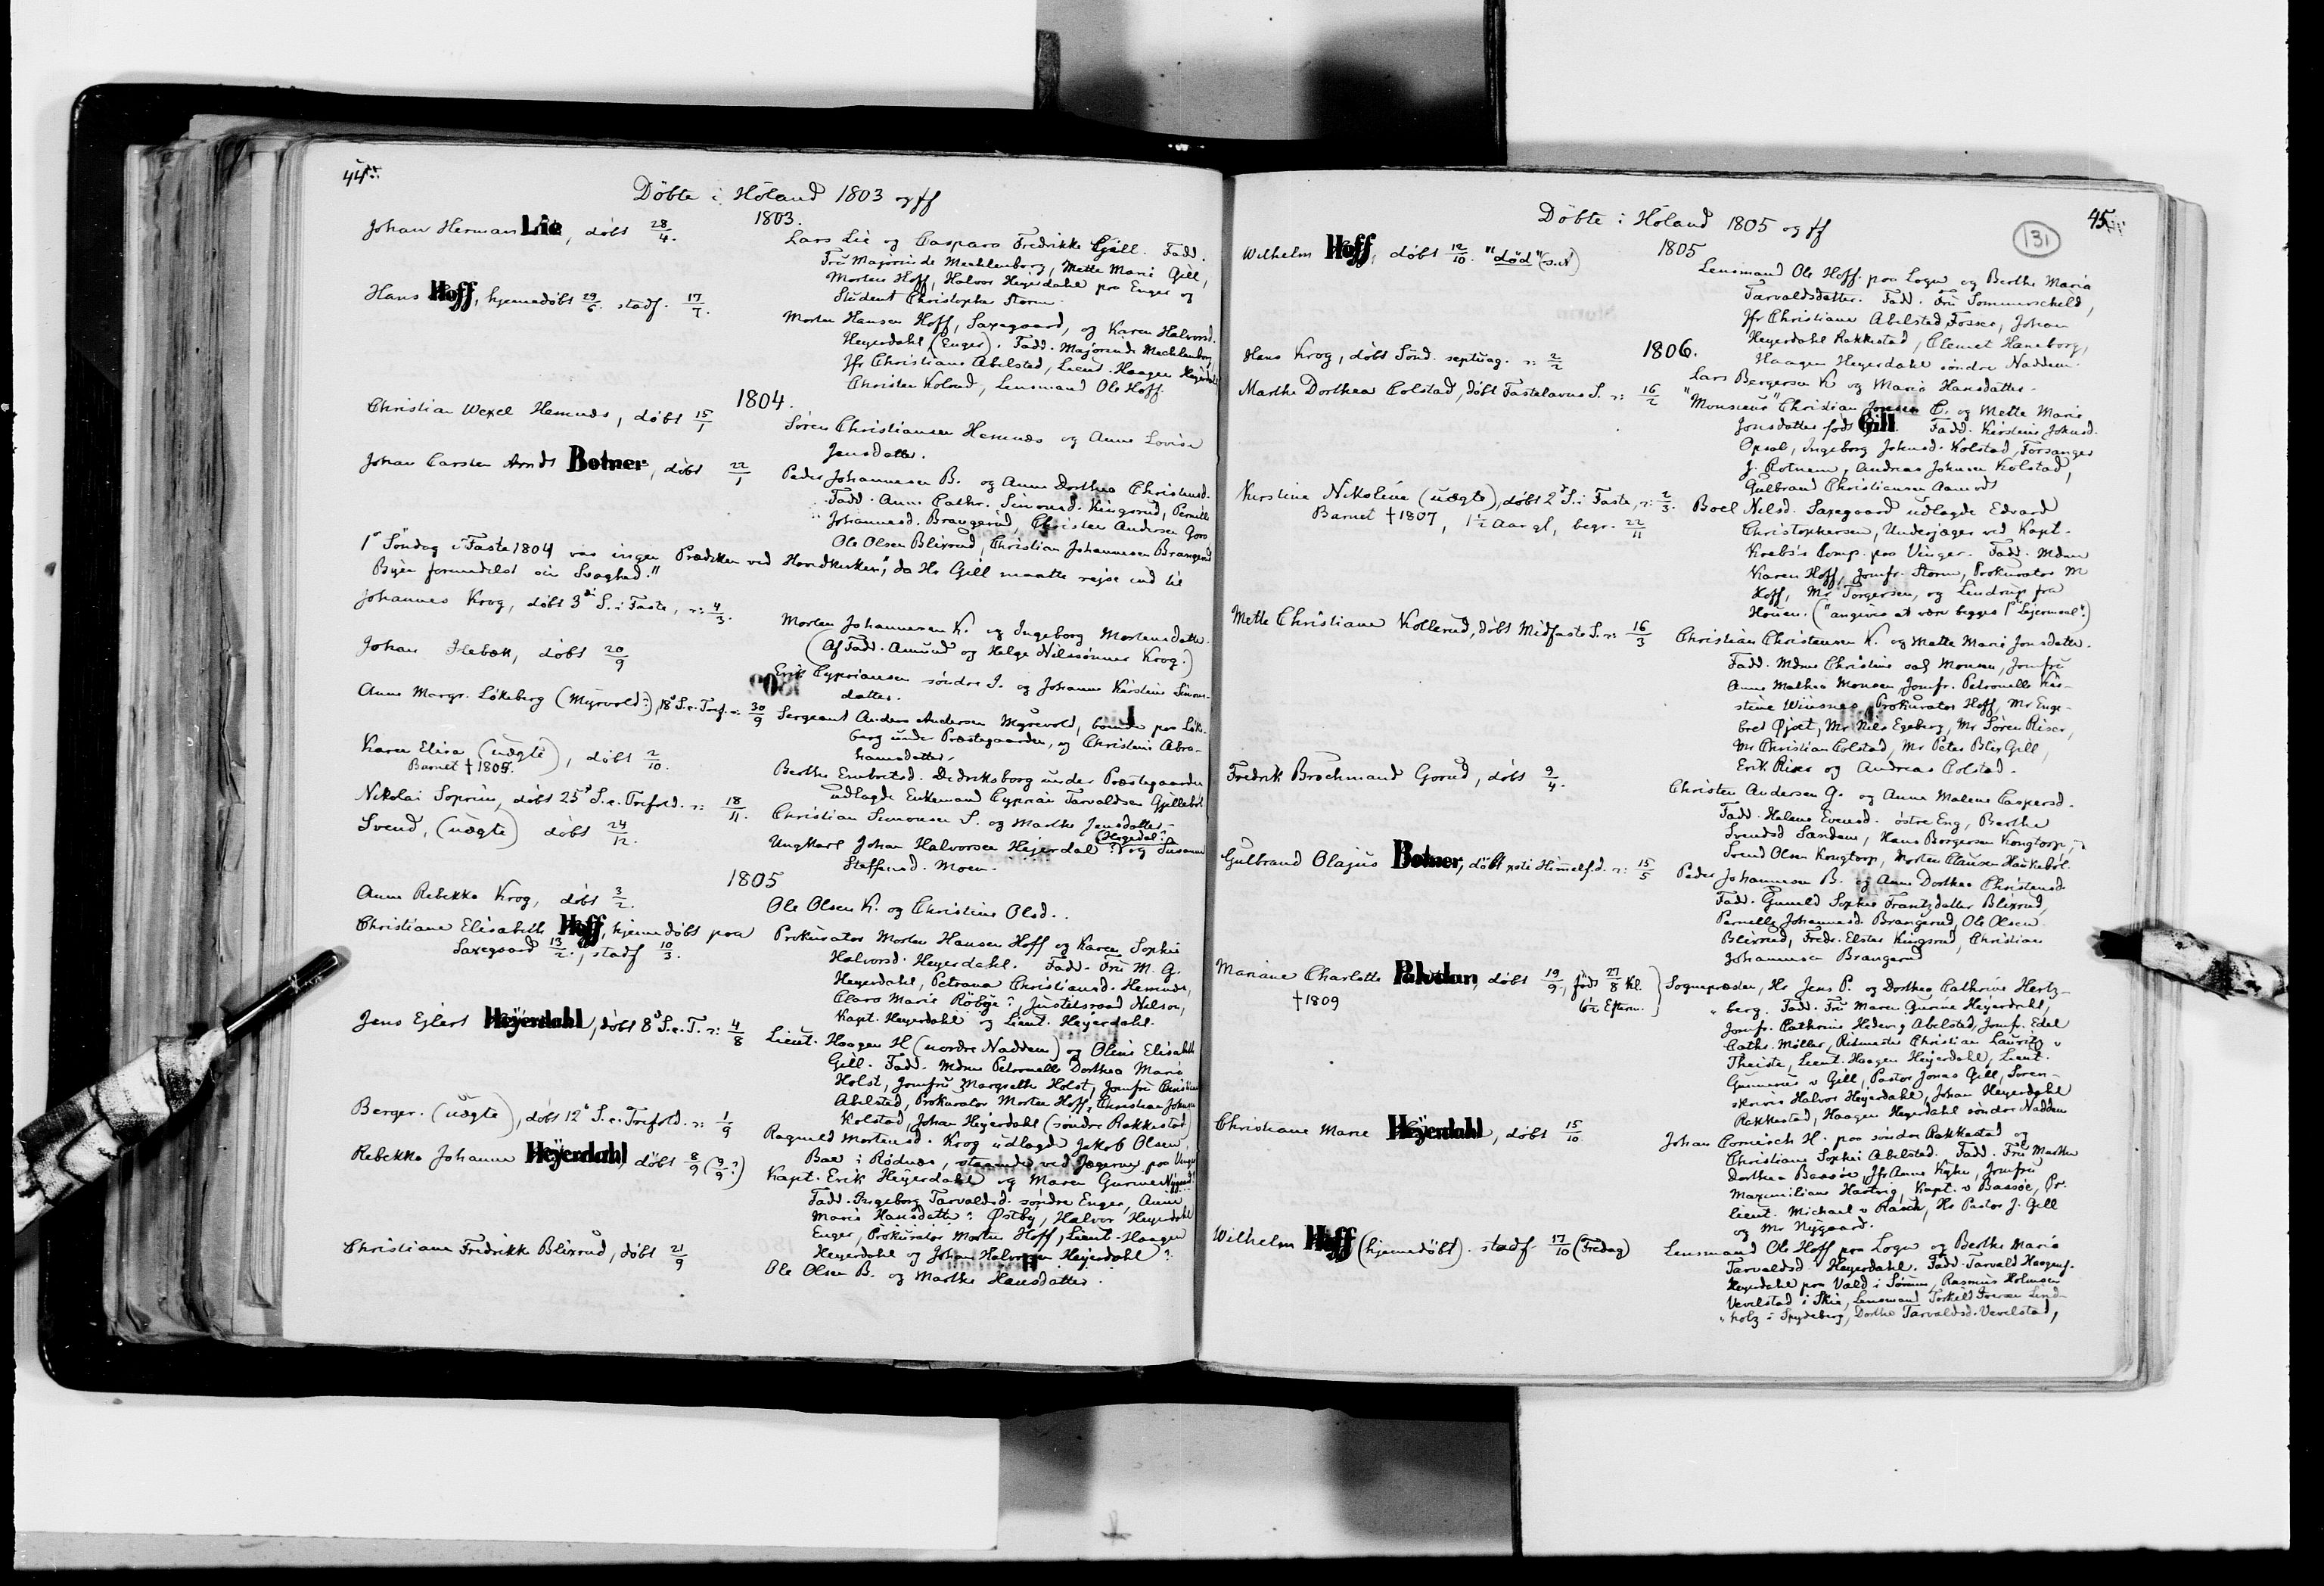 44
Döbte i Höland 1803 og ff
1803.
Johan Herman Lie, döbt 28/4.
Lars Lie og Caspara Fredrikke Gjell. Fadd.
Fru Majorinde Mechlenborg, Mette Marie Gill,
Morten Hoff, Halvor Heyerdahl paa Enger og
Student Christopher Storm.
Hans Hoff, hjemmedöbt 29/6 stadf. 17/7.
Morten Hansen Hoff, Saxegaard, og Karen Halvorsd.
Heyerdahl (Enger). Fadd. Majorinde Mechlenborg,
Jfr Christiane Abelsted, Lieut. Haagen Heyerdahl
Christen Kolsrud, Lensmand Ole Hoff.
1804.
Christian Wexel Hemnæs, döbt 15/1
Sören Christiansen Hemnæs og Anne Lovise
Jensdatter.
Johan Carsten Arndt Botner, döbt 22/1
Peder Johannesen B. og Anne Dorthea Christensd.
Fadd. Anne Cathr. Simonsd. Kingsrud, Pernille
Johannesd. Brangerud, Christen Andersen Gors
Ole Olsen Blixrud, Christian Johannesen Brangerud
1ste Söndag i Faste 1804 var ingen Prædiken ved Hovedkirken, "da Hr Gill maatte rejse ind til
Byen formedelst sin Svaghed."
Johannes Krog, döbt 3de S. i Faste, ɔ: 4/3.
Morten Johannesen K. og Ingeborg Mortensdatter.
(Af Fadd. Amund og Helge Nilssönner Krog.)
Johan Ilebæk, döbt 20/9
Erik Cypriansen söndre I. og Johanne Kirstine Simons-
datter.
Anne Margr. Lökeberg (Myrvold?), 18de S. e. Tref. ɔ: 30/9
Sergeant Anders Andersen Myrevold, boende paa Löke-
berg under Præstegaarden, og Christine Abra-
hamsdatter.
Karen Elisa (uægte), döbt 2/10.
Barnet † 1805.
Berthe Embretsd. Dedriksborg under Præstegaarden
udlagde Enkemand Cyprian Tarvaldsen Gjilleböl
Nikolai Soprim, döbt 25de S. e. Trefold. ɔ: 18/11.
Christian Simonsen S. og Marthe Jensdatter.
Svend, (uægte) döbt 24/12.
Ungkarl Johan Halvorsen Hejerdal (Hegedal?) og Susanne
Steffensd. Moen.
1805
Anne Rebekka Krog, döbt 3/2.
Ole Olsen K. og Christine Olsd..
Christiane Elisabeth Hoff, hjemmedöbt paa
Saxegaard 13/2, stadf 10/3.
Prokurator Morten Hansen Hoff og Karen Sophie
Halvorsd. Heyerdahl. Fadd. Fru M. G.
Heyerdahl, Petrana Christiansd. Hemnæs,
Clara Marie Röbye?, Justitsraad Nelson,
Kapt. Heyerdahl og Lieut. Heyerdahl.
Jens Ejlert Heyerdahl, döbt 8de S. e. T. ɔ: 4/8
Lieut. Haagen H (nordre Naddem) og Oline Elisabeth
Gill. Fadd. Mdme Petronelle Dorthea Marie
Holst, Jomfru Margrethe Holst, Jomfru Christiane
Abelsted, Prokurator Morten Hoff, Christian Johnsen
Kolstad, Johan Heyerdahl (söndre Rakkestad)
Berger. (uægte), döbt 12te S. e. Trefold. ɔ: 1/9
Ragnild Mortensd. Krog udlagde Jakob Olsen
Boe i Rödnæs, staaende ved Jægerne paa Vinger
Rebekka Johanne Heyerdahl döbt 8/9 (9/9?)
Kapt. Erik Heyerdahl og Maren Gurine Nygaard
Fadd. Ingeborg Tarvaldsd. söndre Enger, Anne
Marie Hansdatter? Østby, Halvor Heyerdahl
Enger, Prokurator Morten Hoff, Lieut. Haagen
Heyerdahl og Johan Halvorsen Heyerdahl?
Christiane Fredrikke Blixrud, döbt 21/9
Ole Olsen B. og Marthe Hansdatter.
45
131
Döbte i Höland 1805 og ff
1805
Wilhelm Hoff, döbt 12/10. "död"
Lensmand Ole Hoff paa Logn og Berthe Maria
Tarvaldsdatter. Fadd. Fru Sommerscheld,
Jfr Christiane Abelsted Fosser, Johan
Heyerdahl Rakkestad, Clemet Haneborg,
Haagen Heyerdahl söndre Naddem.
1806.
Hans Krog, döbt Sönd. septuag. ɔ: 2/2
Lars Bergersen K og Maria Hansdatter.
Marthe Dorthea Colstad, döbt Fastelavns S. ɔ: 16/2
"Monsieur" Christian Jonsen C. og Mette Marie
Jonsdatter födt Gill. Fadd. Kirstine Johnsd.
Opsal, Ingeborg Johnsd. Kolstad, Forsanger
J. Rotnem, Andreas Johnsen Kolstad,
Gulbrand Christiansen Aamodt
Kirstine Nikoline (uægte), döbt 2den S. i Faste, ɔ: 2/3.
Barnet † 1807, 1½ Aar gl, begr. 22/11
Boel Nilsd. Saxegaard udlagde Edvard
Christophersen, Underjæger ved Kapt.
Krebs's Comp. paa Vinger. Fadd. Mdme
Karen Hoff, Jomfr. Storm, Prokurator M
Hoff, Mr Torgersen, og Lindrup fra
Houen. ("angives at være begges 1ste Lejermaal".)
Mette Christiane Kollerud, döbt Midfaste S. ɔ: 16/3
Christian Christensen K. og Mette Marie Jonsdatter.
Fadd. Mdme Christine sal Monsen, Jomfru
Anne Mathea Monsen, Jomfr. Petronelle Kir-
stine Wiinsnes, Prokurator Hoff, Mr Enge-
bret Øjset, Mr Nils Egeberg, Mr Sören Riser,
Mr Christian Colstad, Mr Peter Blix Gill,
Erik Riser og Andreas Colstad.
Fredrik Brochmand Gorud, döbt 9/4.
Christen Andersen G. og Anne Malene Caspersd.
Fadd. Helene Evensd. östre Eng, Berthe
Svendsd Sandem, Hans Borgersen Kongtorp,
Svend Olsen Kongtorp, Morten Clausen Haukeböl.
Gulbrand Olajus Botner, döbt Xsti Himmelf.d. ɔ: 15/5
Peder Johannesen B. og Anne Dorthea Christensd
Fadd. Gunild Sophie Frantzdatter Blixrud,
Pernille Johannesd. Brangerud, Ole Olsen
Blixrud, Fredr. Elster Kingsrud, Christian
Johannesen Brangerud
Mariane Charlotte Paludan, döbt 19/9, födt 27/8 Kl.
6½ Efterm.
† 1809
Sognepræsten, Hr Jens P. og Dorthea Cathrine Hertz-
berg. Fadd. Fru Maren Gurine Heyerdahl,
Jomfr. Cathrine Hedevig Abelsted, Jomfr. Edel
Cathr. Møller, Ritmester Christian Lauritz v
Theiste, Lieut. Haagen Heyerdahl, Lieut.
Gunnerus v Gill, Pastor Jonas Gill, Soren-
skriver Halvor Heyerdahl, Johan Heyerdahl
Rakkestad, Haagen Heyerdahl söndre Naddem
Christiane Marie Heyerdahl, döbt 15/10
Johan Cornisch H. paa söndre Rakkestad og
Christiane Sophie Abelsted. Fadd. Fru Marthe
Dorthea Bassöe, Jfr Anne Kyhn, Jomfru
Maximiliane Hartvig, Kapt. v Bassöe, Pr.
lieut. Michael v Rasch, Hr Pastor J. Gill
og Mr Nygaard.
Wilhelm Hoff (hjemmedöbt). stadf. 17/10 (Fredag)
Lensmand Ole Hoff paa Logn og Berthe Maria
Tarvaldsd Heyerdahl. Fadd. Tarvald Haagens.
Heyerdahl paa Vald i Sörum, Rasmus Holmsen
Vevelstad i Skie, Lensmand Torkild Iversen Lind-
holz i Spydeberg, Dorthe Tarvaldsd. Vevelstad,